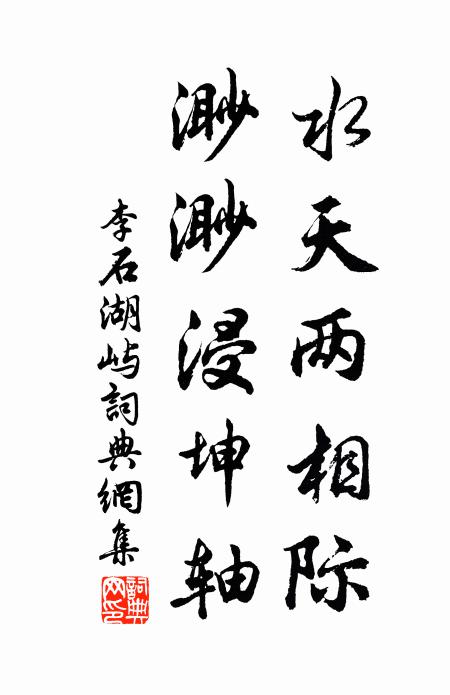 水天两相际
渺渺浸坤轴
李石湖屿詞典網集
詞典网印